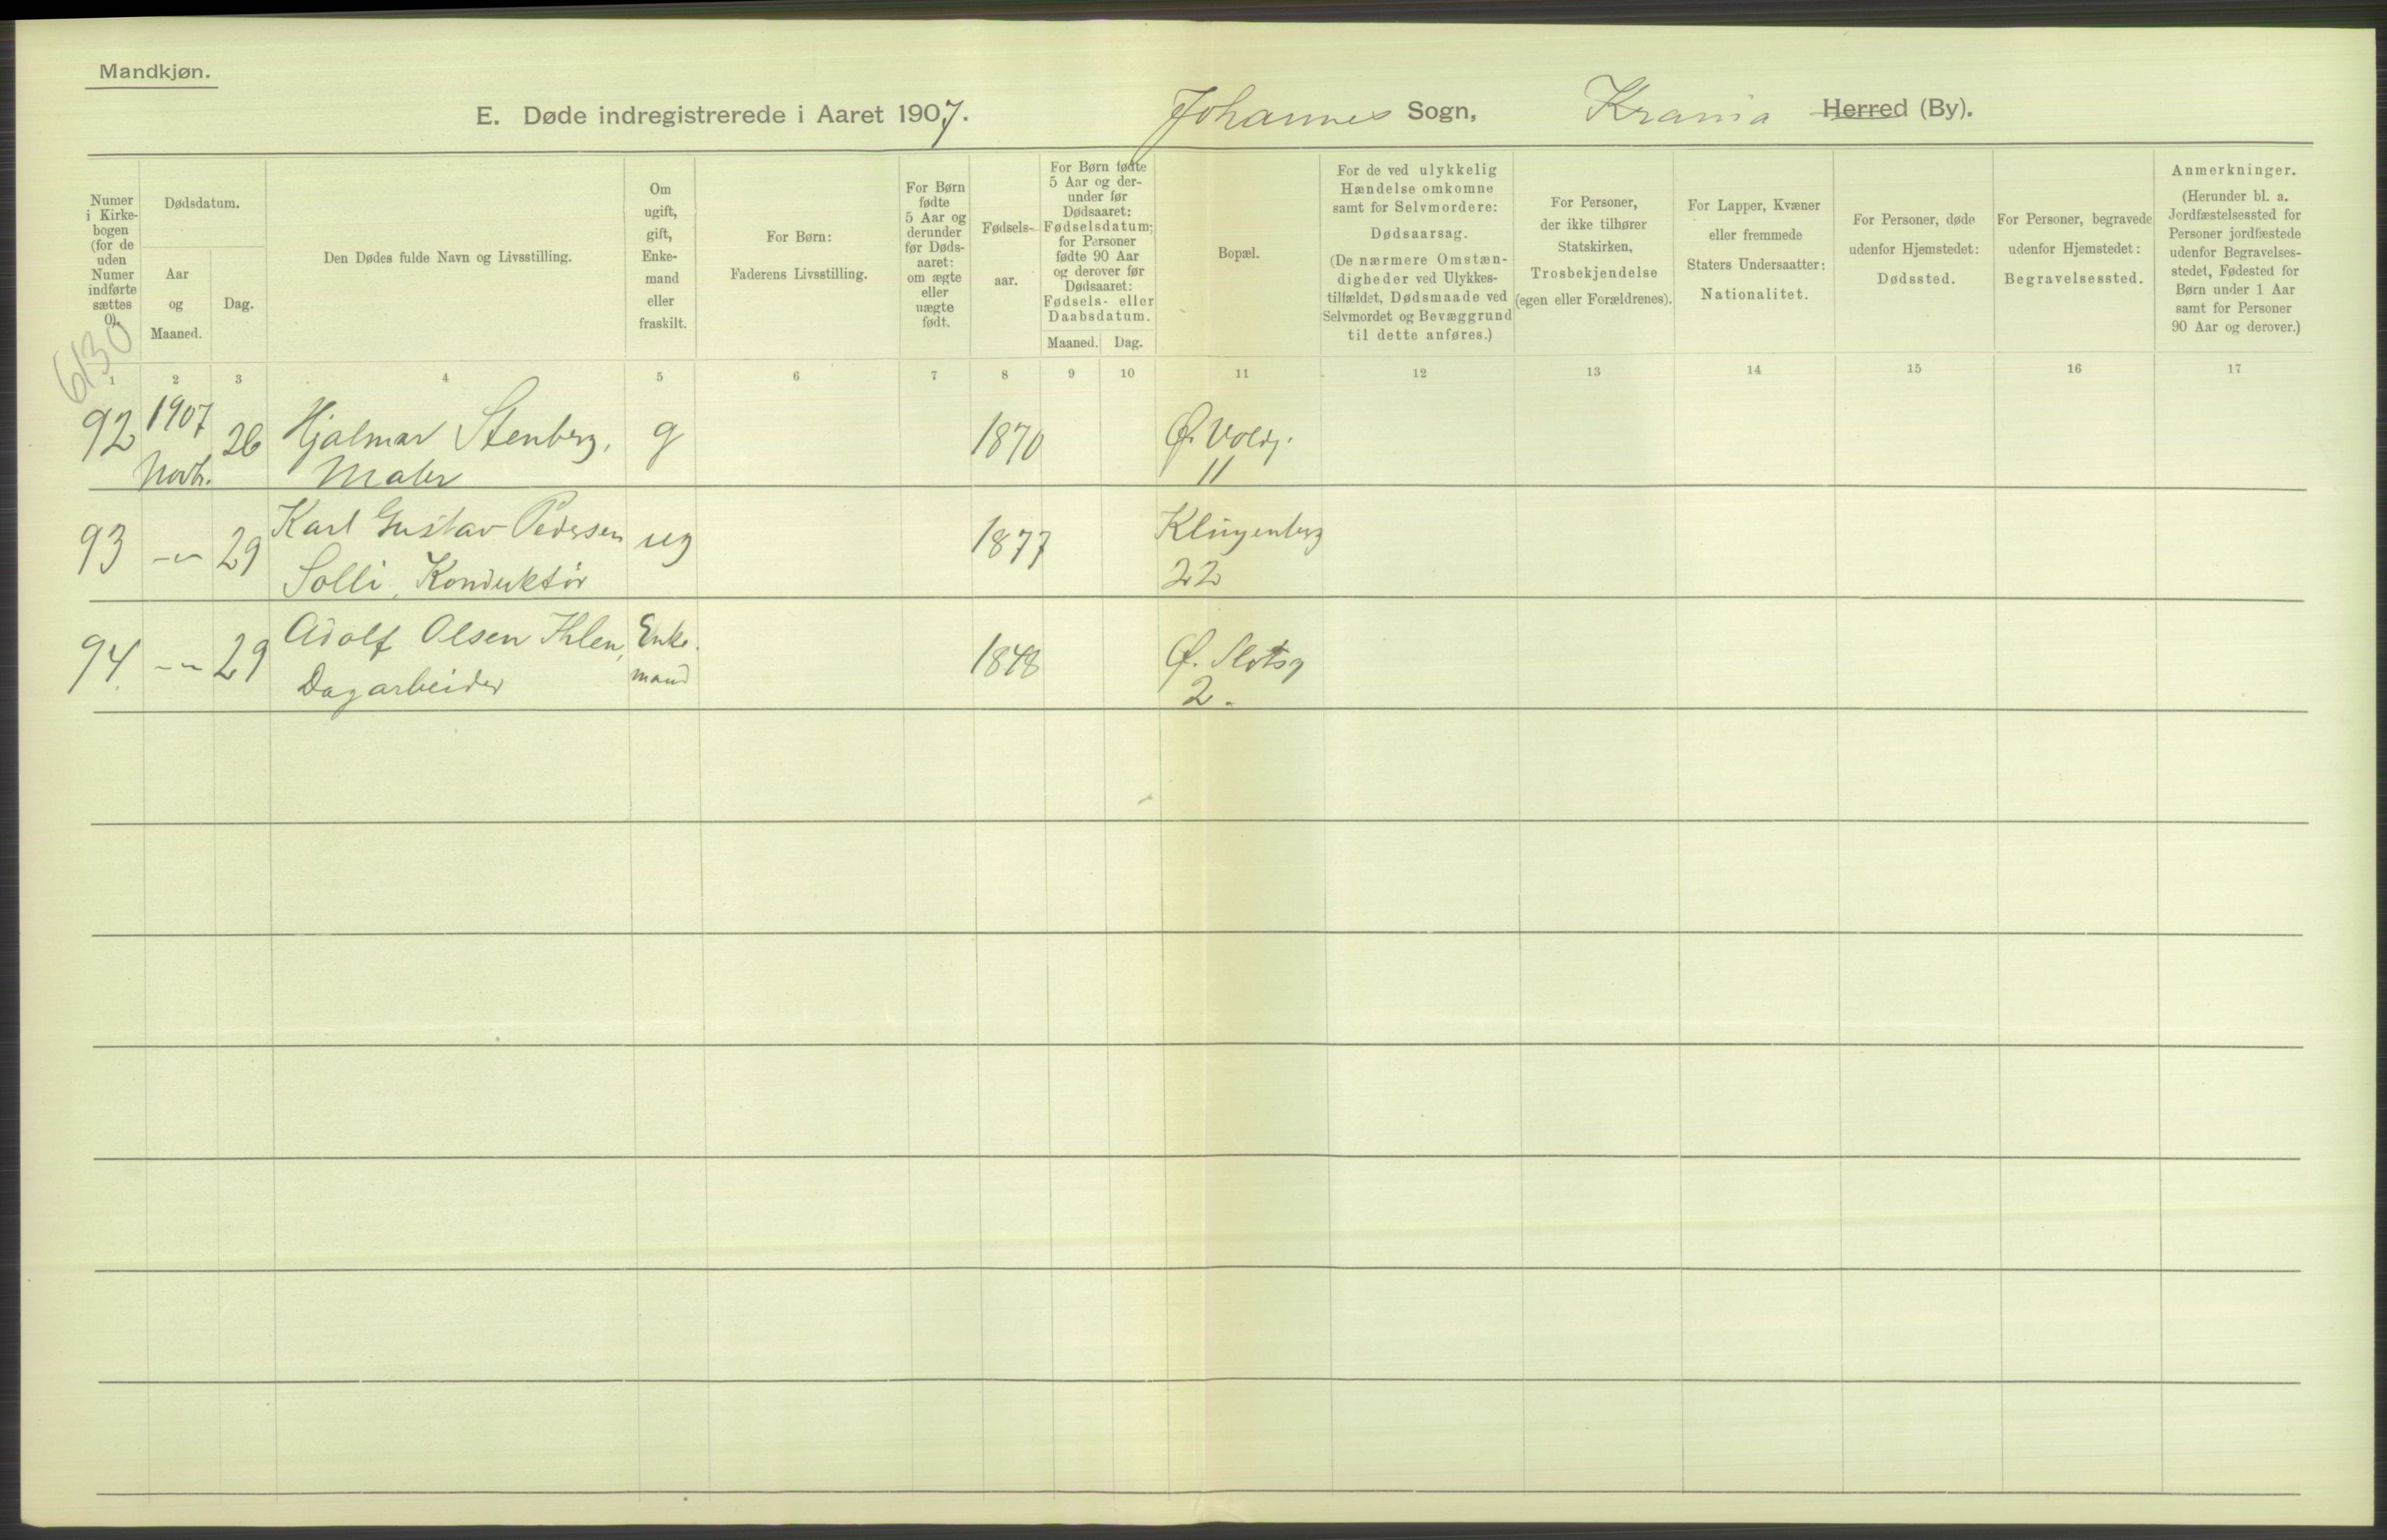 Mandkjøn.
E. Døde indregistrerede i Aaret 1907. Johannes Sogn, Krania Herred (By).
Numer i Kirkebogen (for de uden Numer indførte sættes 0).
Dødsdatum.
Aar og Maaned.
Dag.
Den Dødes fulde Navn og Livsstilling.
Om ugift, gift, Enkemand eller fraskilt.
For Børn: Faderens Livsstilling.
For Børn fødte 5 Aar og derunder før Dødsaaret: om ægte eller uægte født.
Fødselsaar.
For Børn fødte 5 Aar og derunder før Dødsaaret: Fødselsdatum; for Personer fødte 90 Aar og derover før Dødsaaret: Fødsels- eller Daabsdatum.
Maaned. Dag.
Bopæl.
For de ved ulykkelig Hændelse omkomne samt for Selvmordere: Dødsaarsag. (De nærmere Omstændigheder ved Ulykkestilfældet, Dødsmaade ved Selvmordet og Bevæggrund til dette anføres.)
For Personer, der ikke tilhører Statskirken, Trosbekjendelse (egen eller Forældrenes).
For Lapper, Kvæner eller fremmede Staters Undersaatter: Nationalitet.
For Personer, døde udenfor Hjemstedet: Dødssted.
For Personer, begravede udenfor Hjemstedet: Begravelsessted.
Anmerkninger. (Herunder bl. a. Jordfæstelsessted for Personer jordfæstede udenfor Begravelsesstedet, Fødested for Børn under 1 Aar samt for Personer 90 Aar og derover.)
6130
1 2 3 4 5 6 7 8 9 10 11 12 13 14 15 16 17
92 1907 26 Hjalmar Stenberg, g 1870 Ø. Voldg.
Novbr. Maler 11
93 -"- 29 Karl Gustav Pedersen ug 1877 Klingenberg
Solli, Konduktør 22
94. -"- 29 Adolf Olsen Ihlen, Enke- 1848 Ø. Slotsg
Dagarbeider mand 2.